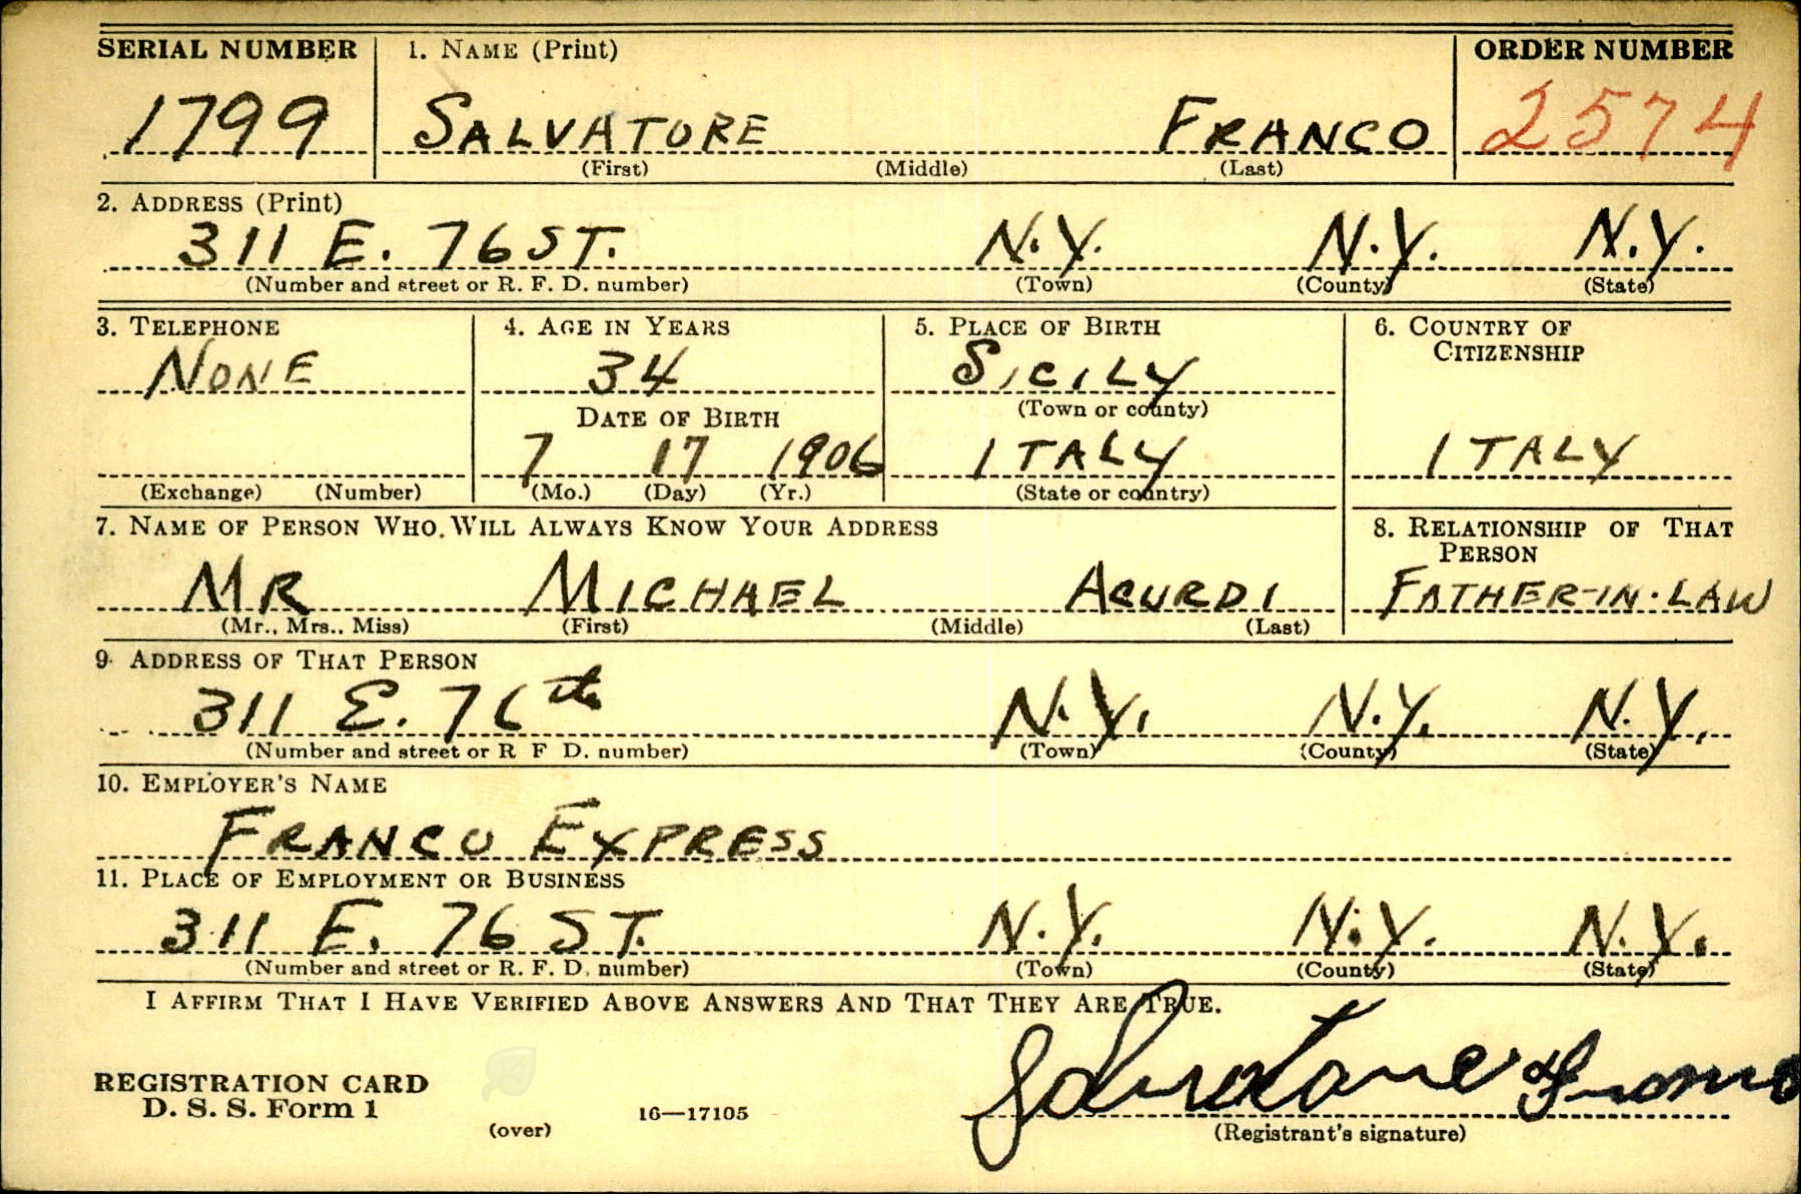 SERIAL NUMBER 1. NAME (Print) ORDER NUMBER
1799 SALVATORE FRANCO 2574
(First) (Middle) (Last)
2. ADDRESS (Print)
311 E. 76 ST. N.Y. N.Y. N.Y.
(Number and street or R. F. D. number) (Town) (County) (State)
3. TELEPHONE 4. AGE IN YEARS 5. PLACE OF BIRTH 6. COUNTRY OF
CITIZENSHIP
NONE 34 SICILY
(Town or county)
DATE OF BIRTH
7 17 1906 ITALY ITALY
(Exchange) (Number) (Mo.) (Day) (Yr.) (State or country)
7. NAME OF PERSON WHO WILL ALWAYS KNOW YOUR ADDRESS 8. RELATIONSHIP OF THAT
PERSON
MR MICHAEL ACURDI FATHER-IN-LAW
(Mr., Mrs., Miss) (First) (Middle) (Last)
9. ADDRESS OF THAT PERSON
311 E. 76th N.Y. N.Y. N.Y.
(Number and street or R F D. number) (Town) (County) (State)
10. EMPLOYER'S NAME
FRANCO EXPRESS
11. PLACE OF EMPLOYMENT OR BUSINESS
311 E. 76 ST. N.Y. N.Y. N.Y.
(Number and street or R. F. D. number) (Town) (County) (State)
I AFFIRM THAT I HAVE VERIFIED ABOVE ANSWERS AND THAT THEY ARE TRUE.
Salvatore Franco
REGISTRATION CARD
D. S. S. Form 1 16—17105
(over) (Registrant's signature)